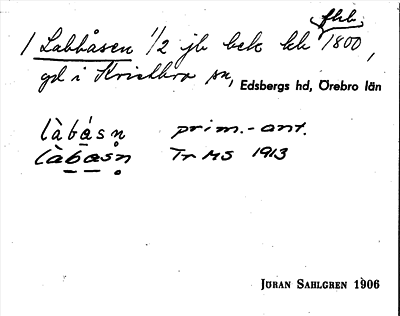 fkb.
/ Labbåsen 1/2 jb bek kk 1800,
gd i Kristbro sn, Edsbergs hd, Örebro län
làbǻsn prim.-ant.
làbåsn̥ Tr MS 1913
JÖRAN SAHLGREN 1906